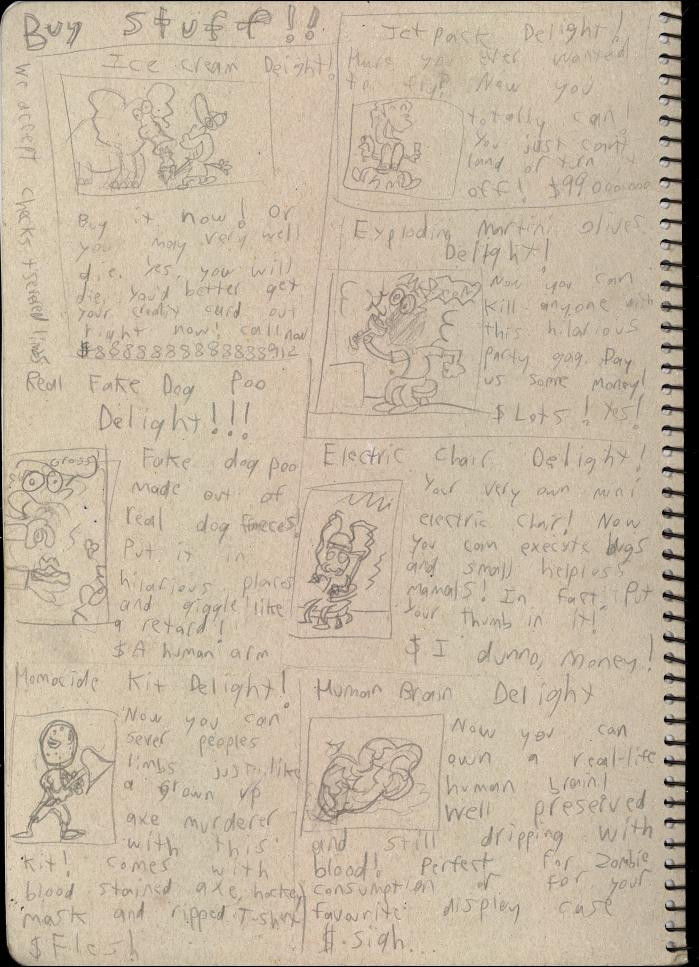 Buy Stuff!!
We accept checks + severed limbs
Ice cream Deight!
Buy it now! Or
you may very well
die. Yes, you will
die, you'd better get
your credit card out
right now! call now
$88888888888888912
Jet pack Delight!
Have you ever wanted
to fly? Now you
totally can!
You just can't
land or turn it
off! $99
Exploding Martini olives
Delight!
Now you can
kill anyone with
this hilarious
party gag. Pay
us some money!
$ Lots! Yes!
Real Fake Dog Poo
Delight!!!
Gross!
Fake dog poo
made out of
real dog faeces!
Put it in
hilarious places
and giggle like
a retard!
$ A human arm
Electric Chair Delight!
Your very own mini
electric chair! Now
you can execute bugs
and small helpless
mamals! In fact! Put
your thumb in it!
$ I dunno, money!
Homocide Kit Delight!
Now you can
sever peoples
limbs just like
a grown up
axe murderer
with this
kit! comes with
blood stained axe, hockey
mask and ripped T-shirt
$ Flesh
Human Brain Delight
Now you can
own a real-life
human brain!
Well preseived
and still dripping with
blood! Perfect for Zombie
consumption or for your
favourite display case
$ sigh...